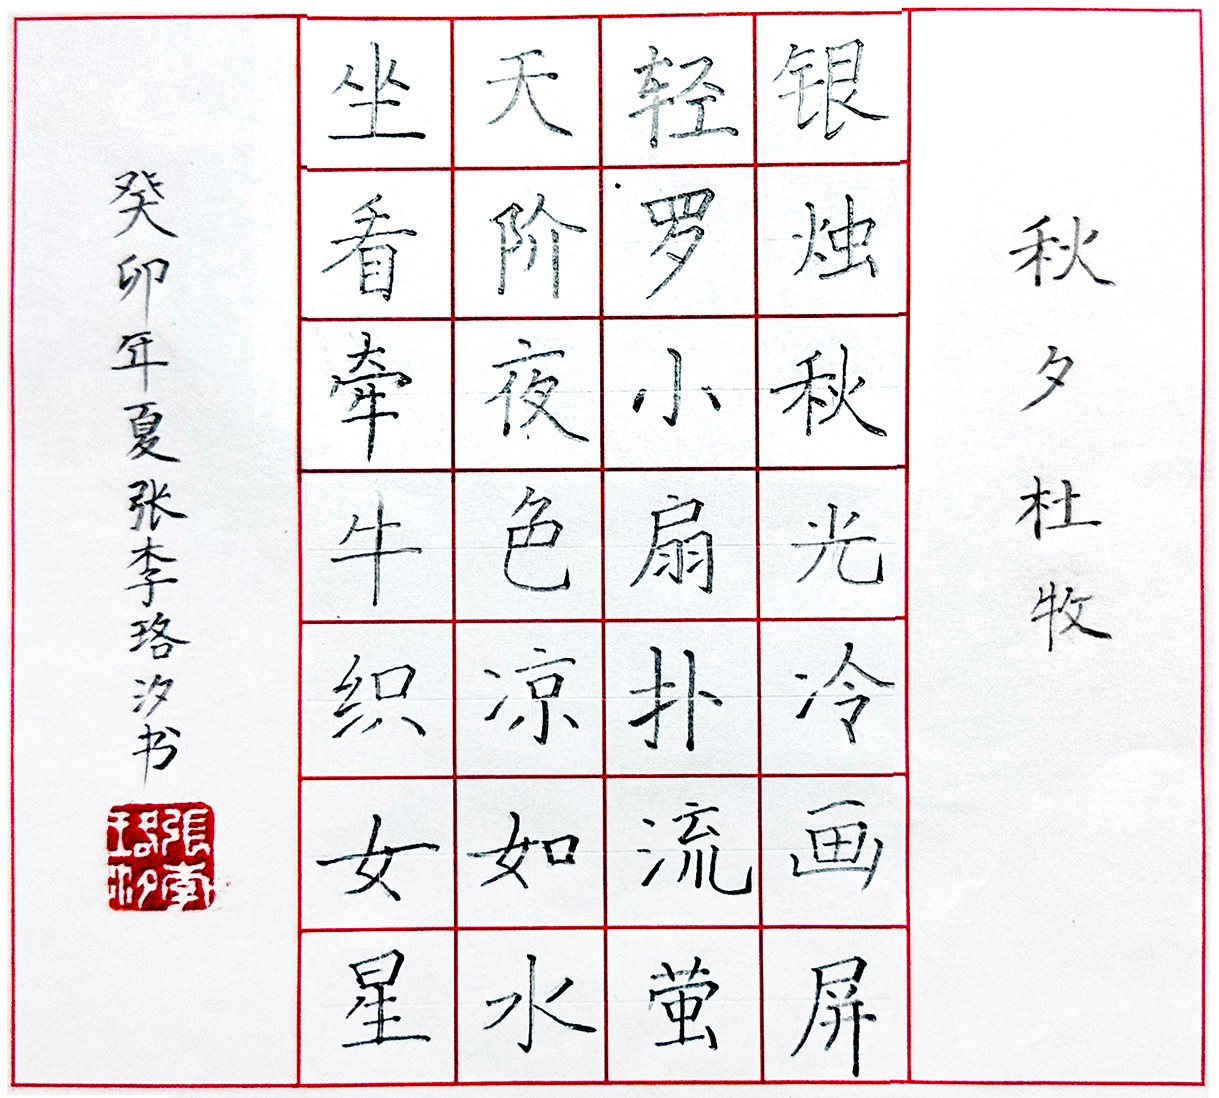 秋夕杜牧
银烛秋光冷画屏
轻罗小扇扑流萤
天阶夜色凉如水
坐看牵牛织女星
癸卯年夏张李珞汐书
张李珞汐